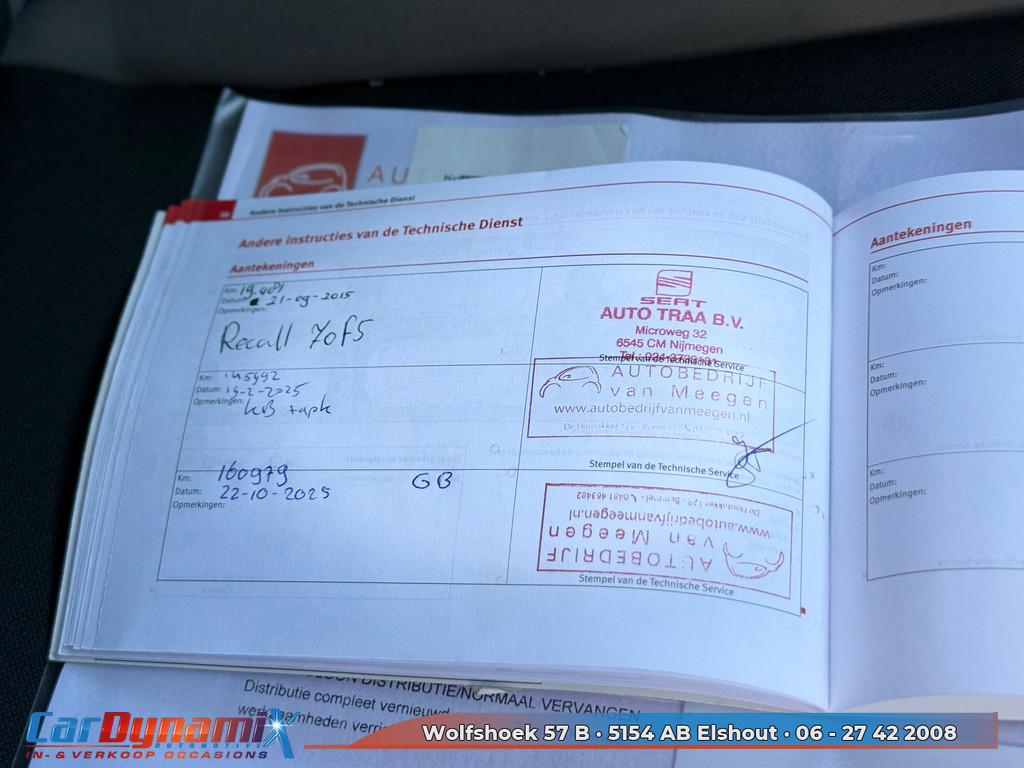 AU
Andere instructies van de Technische Dienst
Andere instructies van de Technische Dienst
Aantekeningen
Km: 19.481
Datum: 21-09-2015
Opmerkingen:
Recall 70F5
SEAT
AUTO TRAA B.V.
Microweg 32
6545 CM Nijmegen
Stempel van de Technische Service
Km: 145492
Datum: 14-2-2025
Opmerkingen:
AUTOBEDRIJF
van Meegen
www.autobedrijfvanmeegen.nl
Stempel van de Technische Service
Km: 160979
Datum: 22-10-2025
Opmerkingen:
GB
AUTOBEDRIJF
van Meegen
www.autobedrijfvanmeegen.nl
De Houtakker 12a - Bemmel - 0481 463482
Stempel van de Technische Service
Aantekeningen
Km:
Datum:
Opmerkingen:
Km:
Datum:
Opmerkingen:
Km:
Datum:
Opmerkingen:
DISTRIBUTIE/NORMAAL VERVANGEN
Distributie compleet vernieuwd
CarDynamiX
AUTOMOTIVE
IN- & VERKOOP OCCASIONS
Wolfshoek 57 B • 5154 AB Elshout • 06 - 27 42 2008